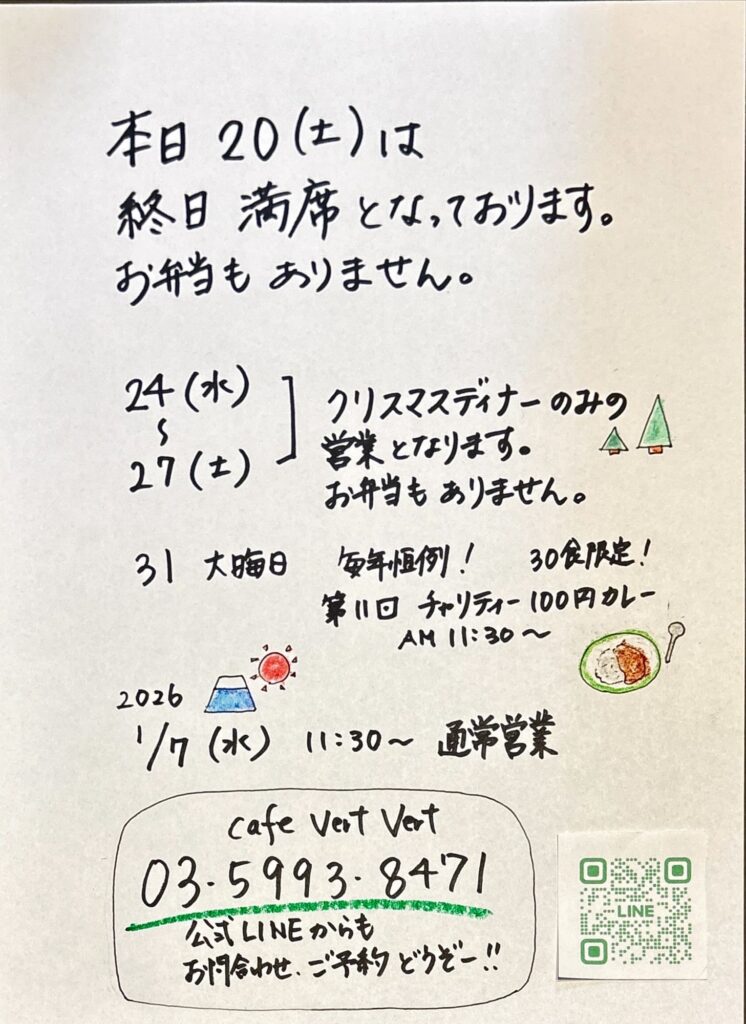 本日 20(土)は
終日 満席となっております。
お弁当も ありません。
24(水)
〜
27(土)
クリスマスディナーのみの
営業となります。
お弁当も ありません。
31 大晦日 毎年恒例! 30食限定!
第11回 チャリティー100円カレー
AM 11:30〜
2026
1/7(水) 11:30〜 通常営業
cafe Vert Vert
03-5993-8471
公式LINEからも
お問合わせ、ご予約どうぞー!!
LINE